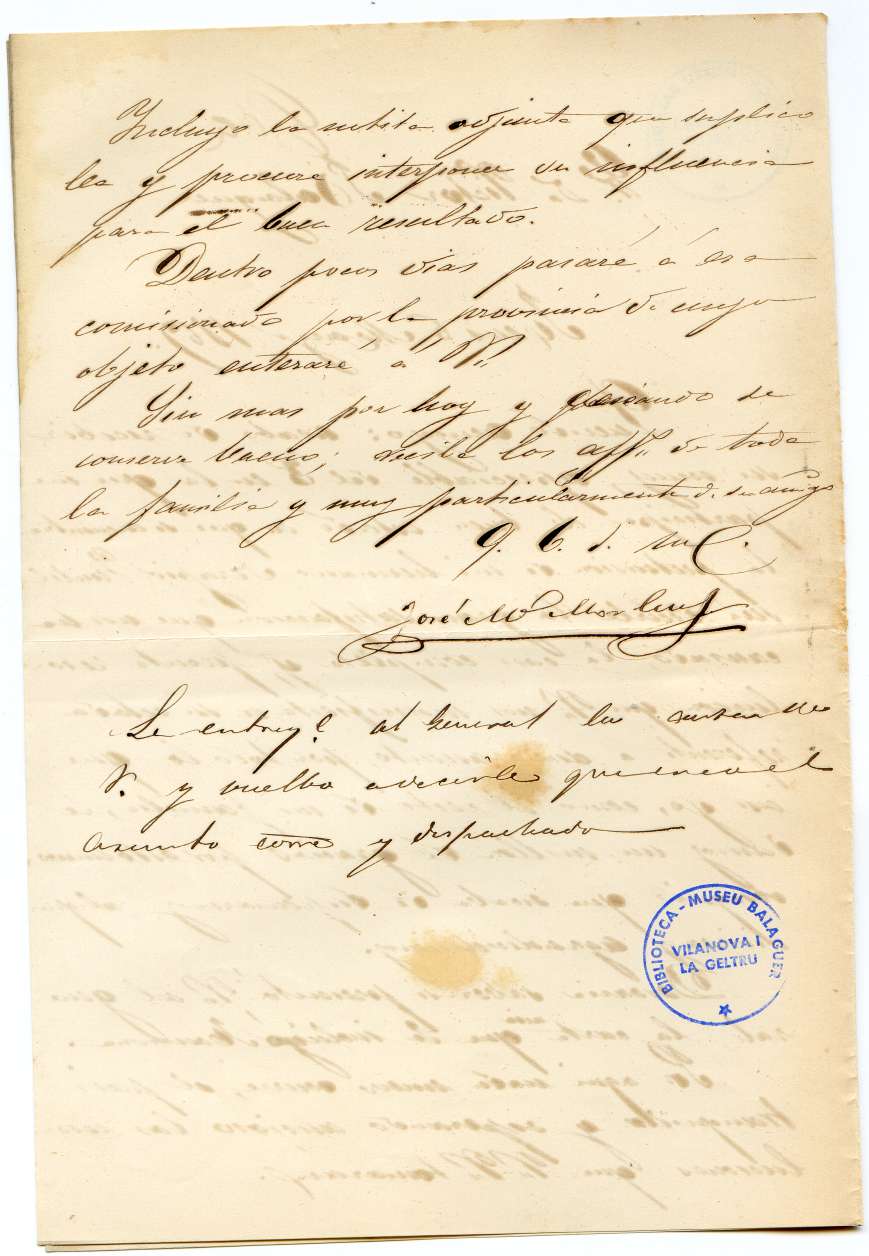 Incluyo la notita adjunta que suplico
lea y procure interponer su influencia
para el buen resultado.
Dentro pocos dias pasaré á esa
comisionado por la provincia de cuyo
objeto enteraré á V.
Sin mas por hoy y deseando se
conserve bueno; reciba los aff.s de toda
la familia y muy particularmente d. su amigo
q. b. s. m.
José M.a
Le entregé al General la carta de
V. y vuelbo a decirle que el
asunto corre y despachado
BIBLIOTECA - MUSEU BALAGUER
VILANOVA I
LA GELTRU